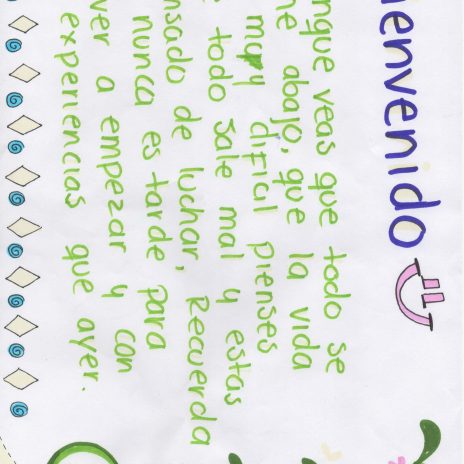 ienvenido
nque veas que todo se
ne abajo, que la vida
muy dificil pienses
todo sale mal y estas
nsado de luchar, Recuerda
nunca es tarde para
ver a empezar y con
experiencias que ayer.